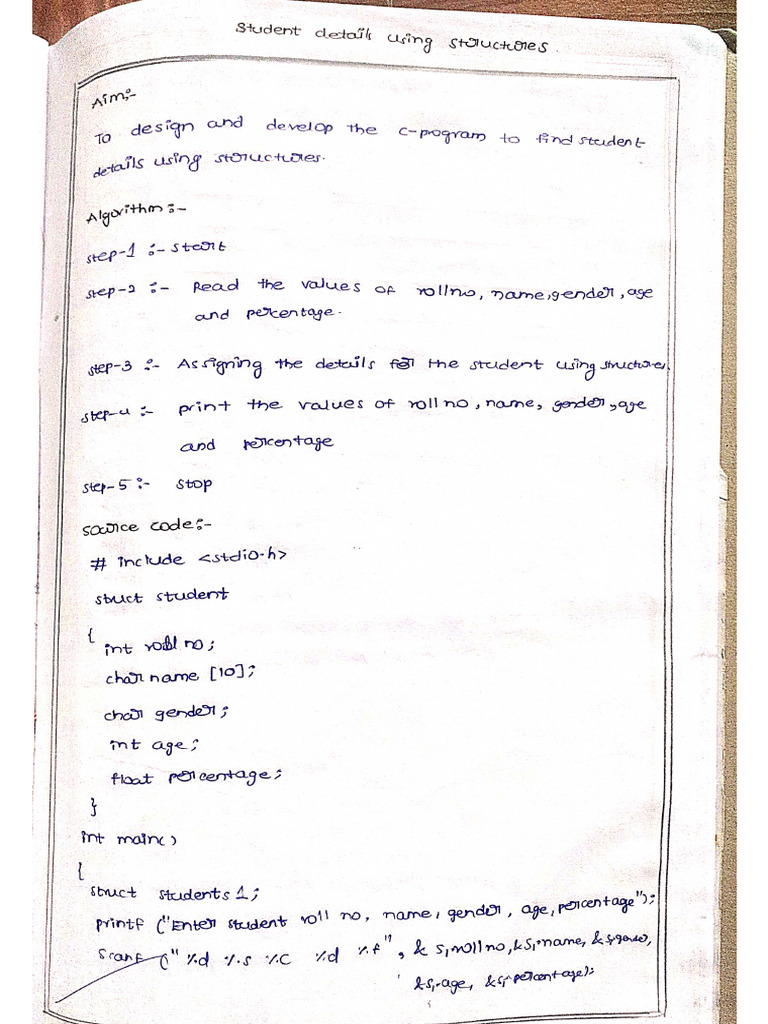 Student details using structures.
Aim:-
To design and develop the c-program to find student
details using structures.
Algorithm:-
step-1 :- start
step-2 :- Read the values of rollno, name, gender, age
and percentage.
step-3 :- Assigning the details for the student using structures.
step-4 :- print the values of roll no, name, gender, age
and percentage
step-5 :- stop
source code:-
# include <stdio.h>
struct student
{
int roll no;
char name [10];
char gender;
int age;
float percentage;
}
int main()
{
struct students1;
printf ("Enter student roll no, name, gender, age, percentage");
scanf (" %d %s %c %d %f", & s1.rollno, & s1.name, & s1.gender,
& s1.age, & s1.percentage);